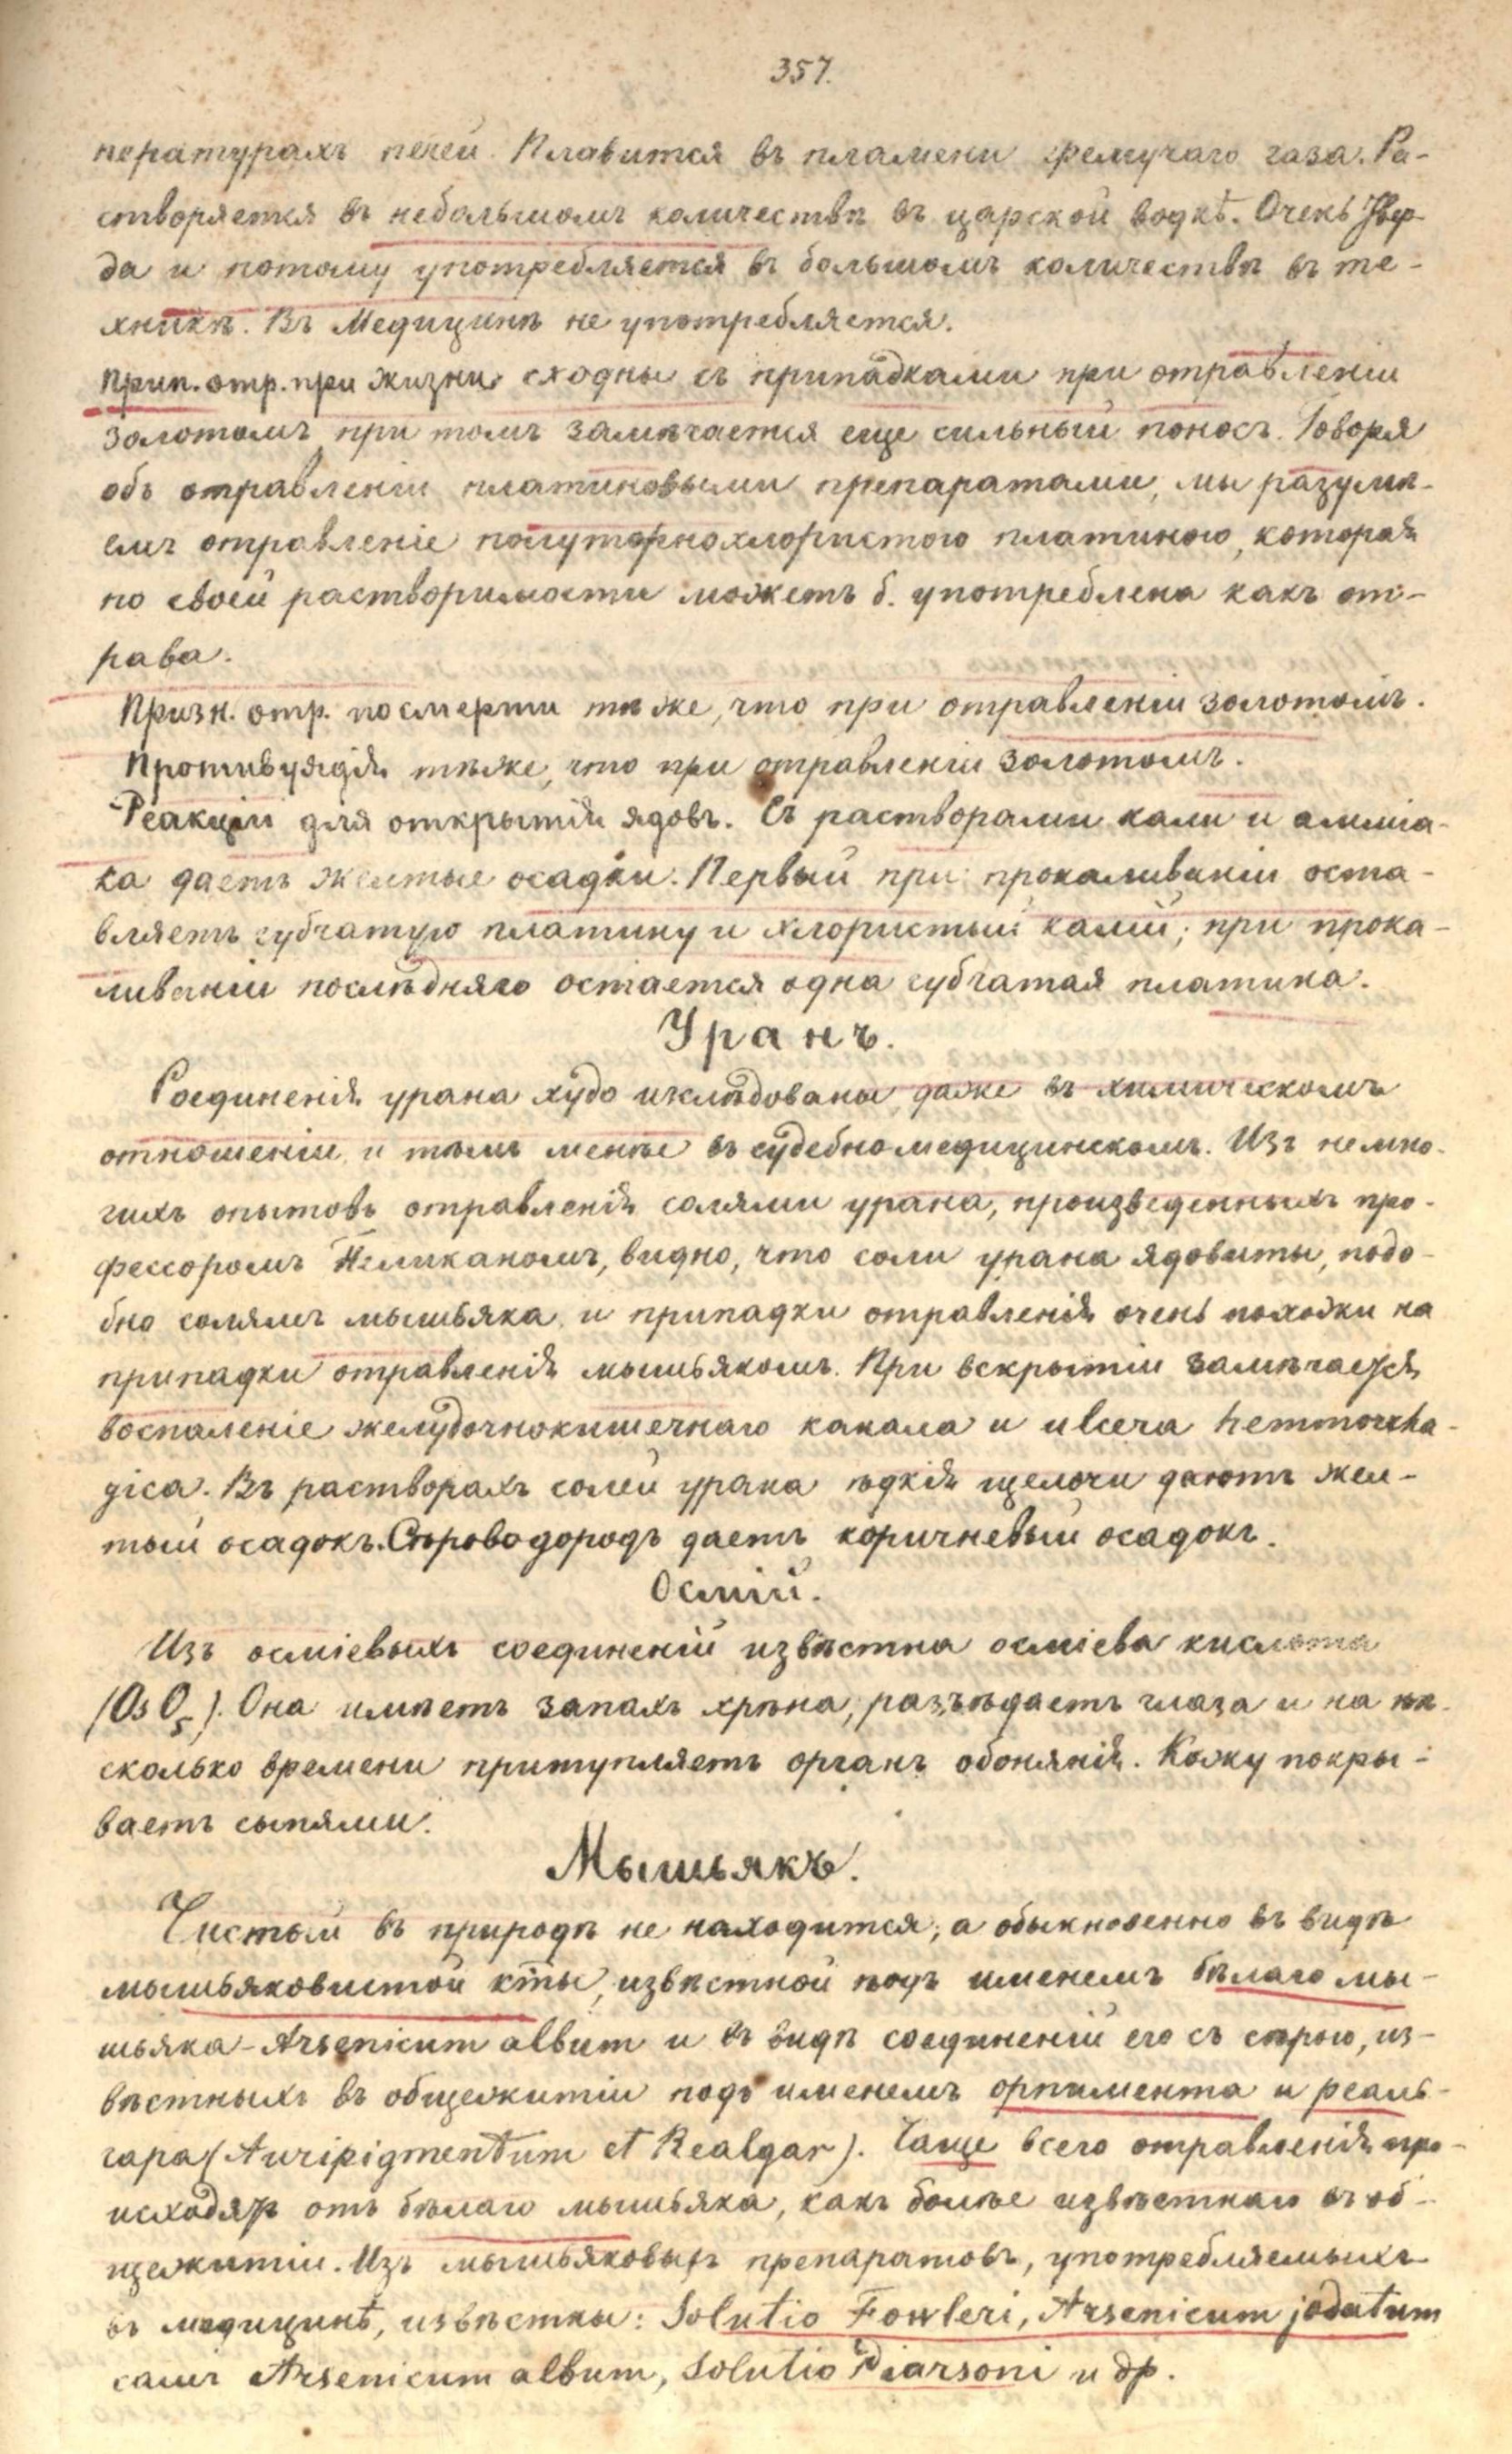 357.
пературахъ печей. Плавится въ пламени гремучаго газа. Ра-
створяется въ небольшомъ количествѣ въ царской водкѣ. Очень твер-
да и потому употребляется въ большомъ количествѣ въ те-
хникѣ. Въ Медицинѣ не употребляется.
Прип. отр. при жизни, сходны съ припадками при отравленіи
золотомъ, при томъ замѣчается еще сильный поносъ. Говоря
объ отравленіи платиновыми препаратами, мы разумѣ-
емъ отравленіе полуторнохлористою платиною, которая
по своей растворимости можетъ б. употреблена какъ от-
рава.
Призн. отр. посмерти тѣже, что при отравленіи золотомъ.
Противуядія тѣже, что при отравленіи золотомъ.
Реакціи для открытія ядовъ. Съ растворами кали и амміа-
ка даетъ желтые осадки. Первый при прокаливаніи оста-
вляетъ губчатую платину и хлористый калій; при прока-
ливаніи послѣдняго остается одна губчатая платина.
Уранъ.
Соединенія урана худо изслѣдованы, даже въ химическомъ
отношеніи, и тѣмъ менѣе въ судебномедицинскомъ. Изъ немно-
гихъ опытовъ отравленія солями урана, произведенныхъ про-
фессоромъ Пеликаномъ, видно, что соли урана ядовиты, подо-
бно солямъ мышьяка, и припадки отравленія очень похожи на
припадки отравленія мышьякомъ. При вскрытіи замѣчается
воспаленіе желудочнокишечнаго канала и ulcera hemmorrha-
gica. Въ растворахъ солей урана ѣдкія щелочи даютъ жел-
тый осадокъ. Сѣроводородъ даетъ коричневый осадокъ.
Осмій.
Изъ осміевыхъ соединеній извѣстна осміева кислота
(OsO5). Она имѣетъ запахъ хрѣна, разъѣдаетъ глаза и на нѣ-
сколько времени притупляетъ органъ обонянія. Кожу покры-
ваетъ сыпями.
Мышьякъ.
Чистый въ природѣ не находится, а обыкновенно въ видѣ
мышьяковистой кты, извѣстной подъ именемъ бѣлаго мы-
шьяка - Arsenicum album и въ видѣ соединеній его съ сѣрою, из-
вѣстныхъ въ общежитіи подъ именемъ орпимента и реаль-
гара (Auripigmentum et Realgar). Чаще всего отравленія про-
исходятъ отъ бѣлаго мышьяка, какъ болѣе извѣстнаго въ об-
щежитіи. Изъ мышьяковыхъ препаратовъ, употребляемыхъ
въ медицинѣ, извѣстны: Solutio Fowleri, Arsenicum jodatum
самъ Arsenicum album, Solutio Piarsoni и др.